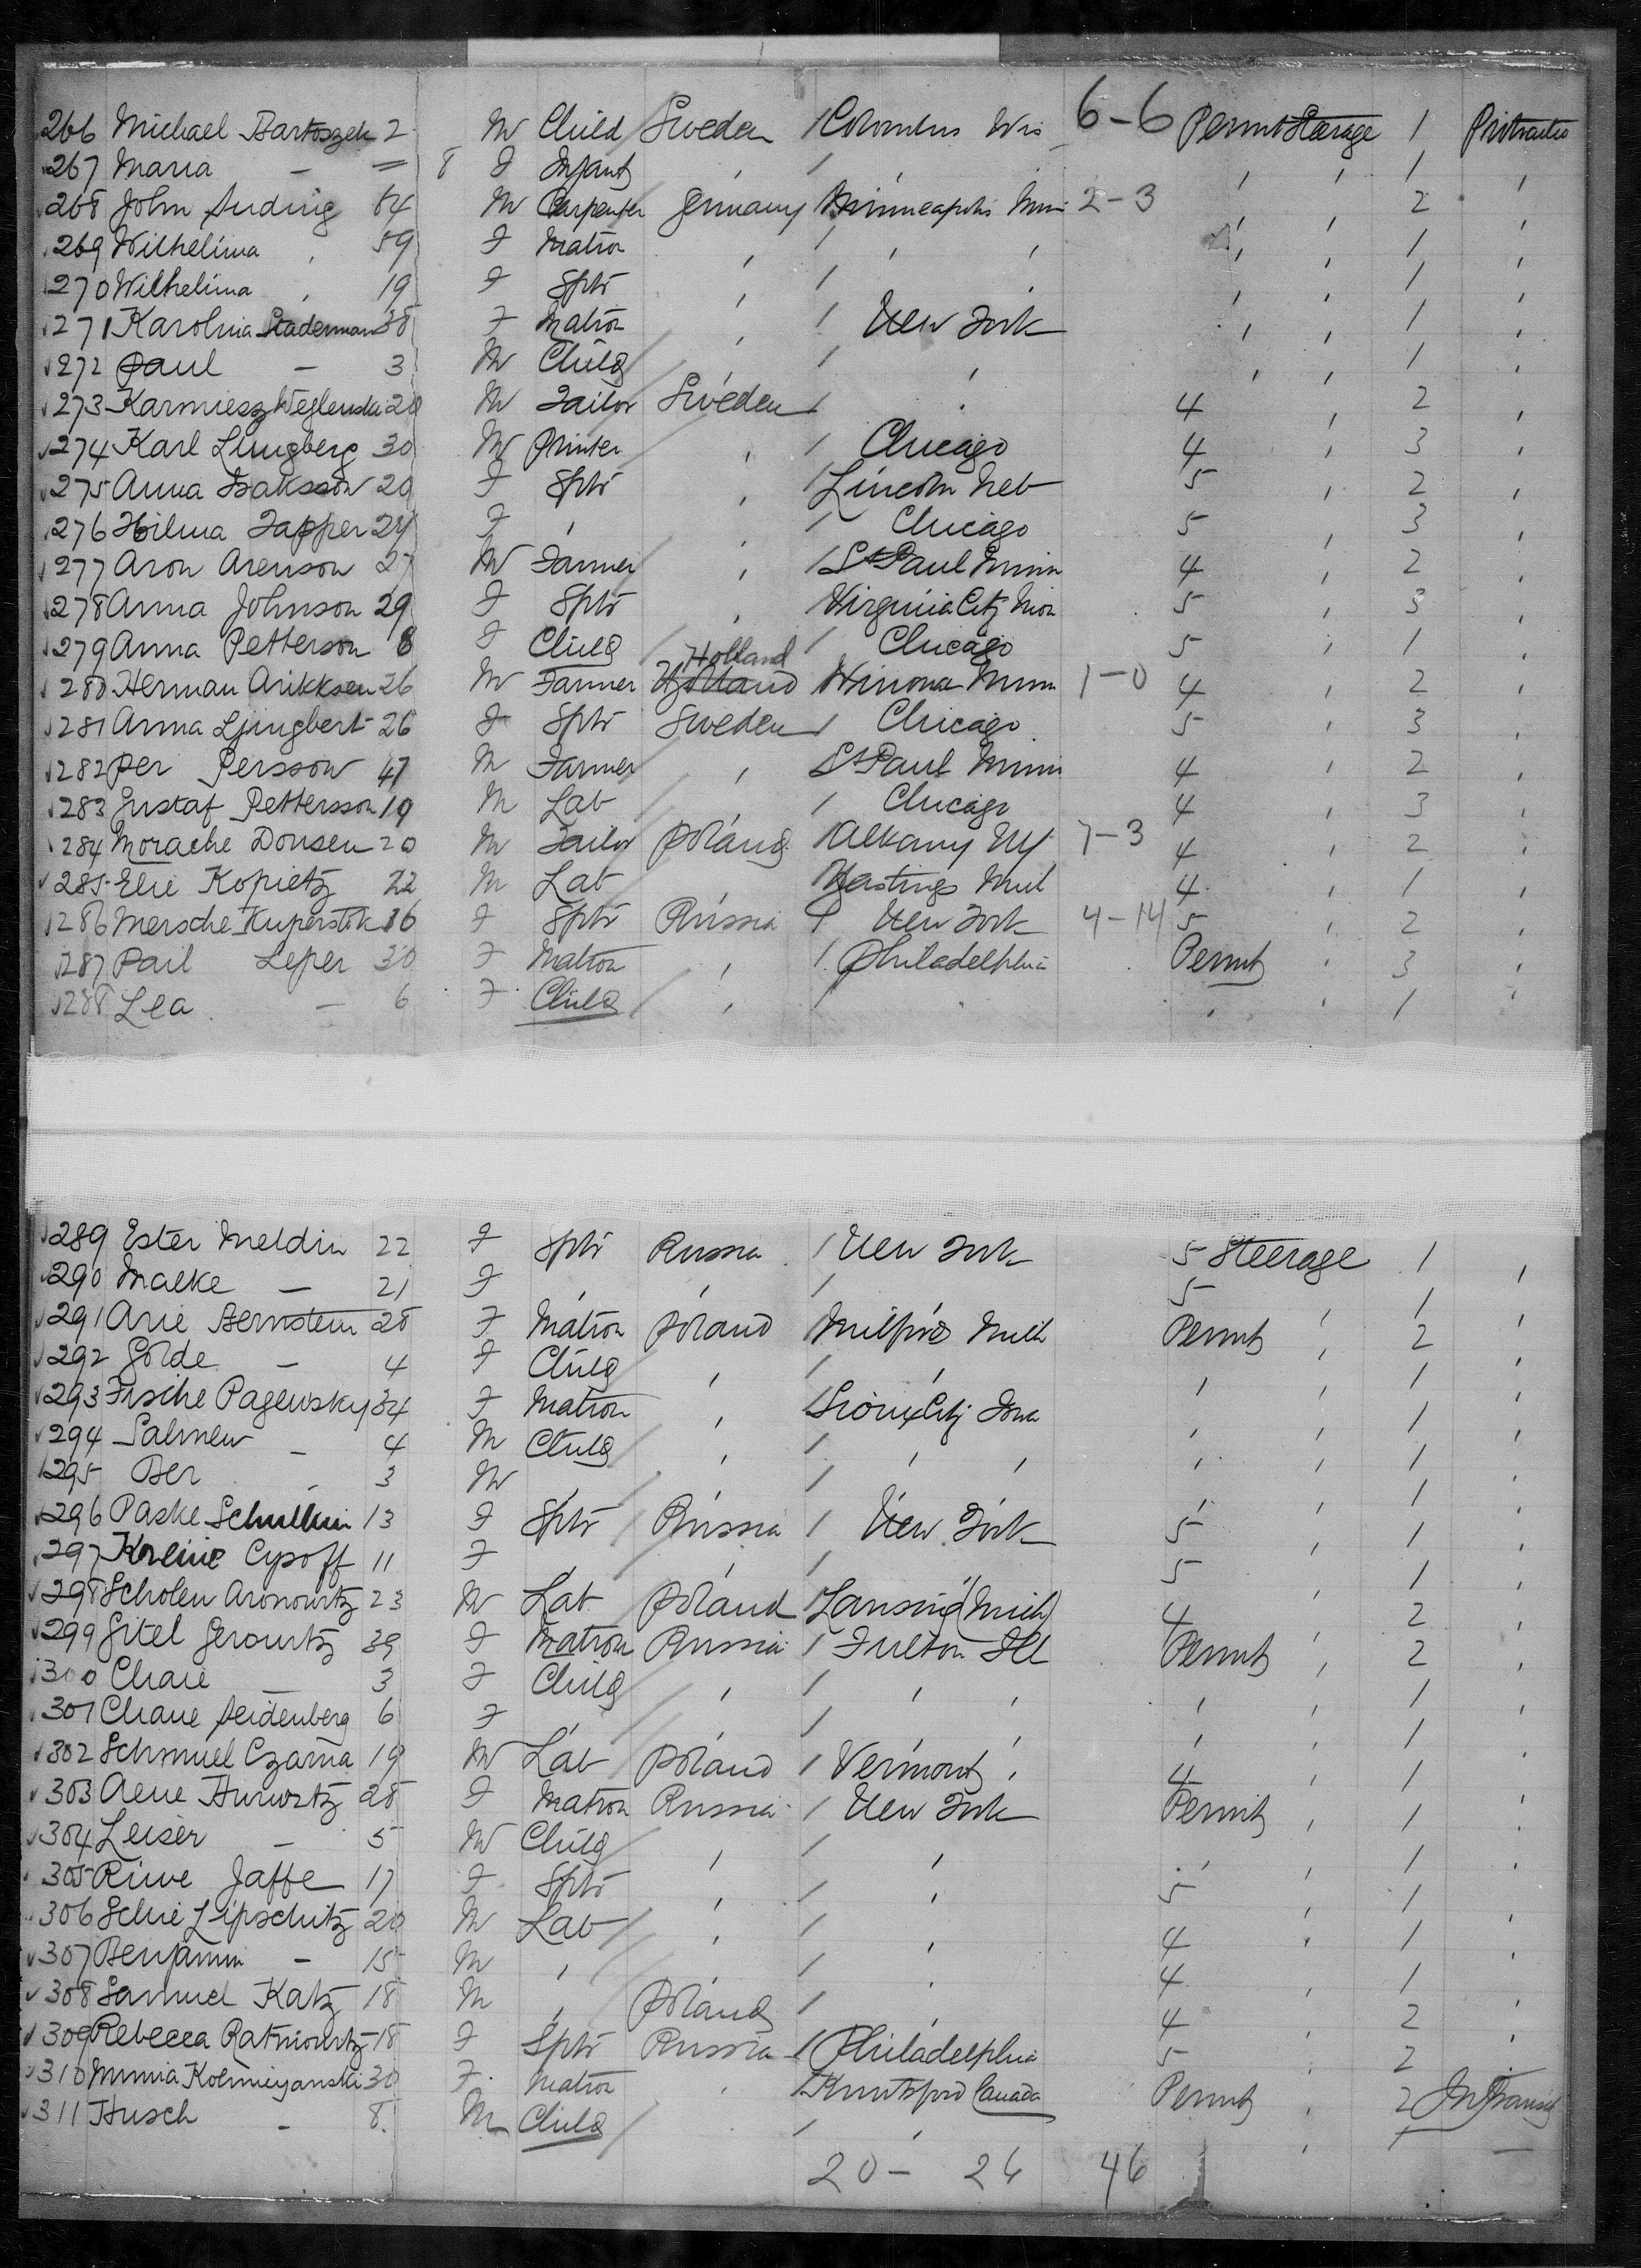 266 Michael Bartoszek 2 M Child Sweden / Columbus Wis 6-6 Permit Steerage 1 Protracted
267 Maria - = 8 F Infant , / , , , 1 ,
268 John Auding 64 M Carpenter Germany / Minneapolis Minn 2-3 , , 2 ,
269 Wilhelima , 59 F Matron , / , , , , 1 ,
270 Wilhelima , 19 F Sptr , / , , , 1 ,
271 Karolina Staderman 38 F Matron , / New York , , 1 ,
272 Paul - 3 M Child , / , , , 1 ,
273 Karmiesz Weglenski 20 M Tailor Sweden / , 4 , 2 ,
274 Karl Lungberg 30 M Printer , / Chicago 4 , 3 ,
275 Anna Isaksson 20 F Sptr , / Lincoln Neb 5 , 2 ,
276 Hilma Tapper 24 F , , / Chicago 5 , 3 ,
277 Aron Arenson 27 M Farmer , / St Paul Minn 4 , 2 ,
278 Anna Johnson 29 F Sptr , Virginia City Mon 5 , 3 ,
279 Anna Petterson 8 F Child / Chicago 5 , 1 ,
Holland
280 Herman Arikksen 26 M Farmer Winona Minn 1-0 4 , 2 ,
281 Anna Ljungbert 26 F Sptr Sweden / Chicago 5 , 3 ,
282 Per Persson 47 M Farmer , St Paul Minn 4 , 2 ,
283 Gustaf Pettersson 19 M Lab / Chicago 4 , 3 ,
284 Morache Donsen 20 M Tailor Poland / Albany NY 7-3 4 , 2 ,
285 Elie Kopietz 22 M Lab , Hastings 4 , 1 ,
286 Mersche Kuperstok 16 F Sptr Russia / New York 4-14 5 , 2 ,
287 Pail Leper 30 F Matron , / Philadelphia Permit , 3 ,
288 Lea - 6 F Child , / , , 1 ,
289 Ester Meldin 22 F Sptr Russia / New York 5 Steerage 1 ,
290 Malke - 21 F , , / , 5 , 1 ,
291 Arie Bernstein 28 F Matron Poland / Milford Mich Permit , 2 ,
292 Golde - 4 F Child , / , , , 1 ,
293 Frsche Pagewsky 34 F Matron , / Sioux City Iowa , , 1 ,
294 Salmen - 4 M Child , / , , , , 1 ,
295 Ber , 3 M , , / , , 1 ,
296 Paske Schulkin 13 F Sptr Russia / New York 5 , 1 ,
297 Kreine Cypoff 11 F , , / , 5 , 1 ,
298 Scholen Aronowitz 23 M Lab Poland / Lansing (Mich) 4 , 2 ,
299 Gitel Gerowitz 39 F Matron Russia / Fulton Ill Permit , 2 ,
300 Chaie - 3 F Child , / , , , , 1 ,
301 Chane Seidenberg 6 F , , / , , , 1 ,
302 Schmuel Czarna 19 M Lab Poland / Vermont , 4 , 1 ,
303 Aene Hurwitz 28 F Matron Russia / New York Permit , 1 ,
304 Leiser - 5 M Child , / , , , 1 ,
305 Riwe Jaffe 17 F Sptr , / , 5 , 1 ,
306 Schie Lipschitz 20 M Lab , / , 4 , 1 ,
307 Benjamin - 15 M , , / , 4 , 1 ,
308 Samuel Katz 18 M , Poland / , 4 , 2 ,
309 Rebecca Ratniowitz 18 F Sptr Russia / Philadelphia 5 , 2 ,
310 Minnia Kolmieyanski 30 F Matron , / Canada Permit , 2 In Transit
311 Husch - 8 M Child , / , , , 1 -
20 - 26 46